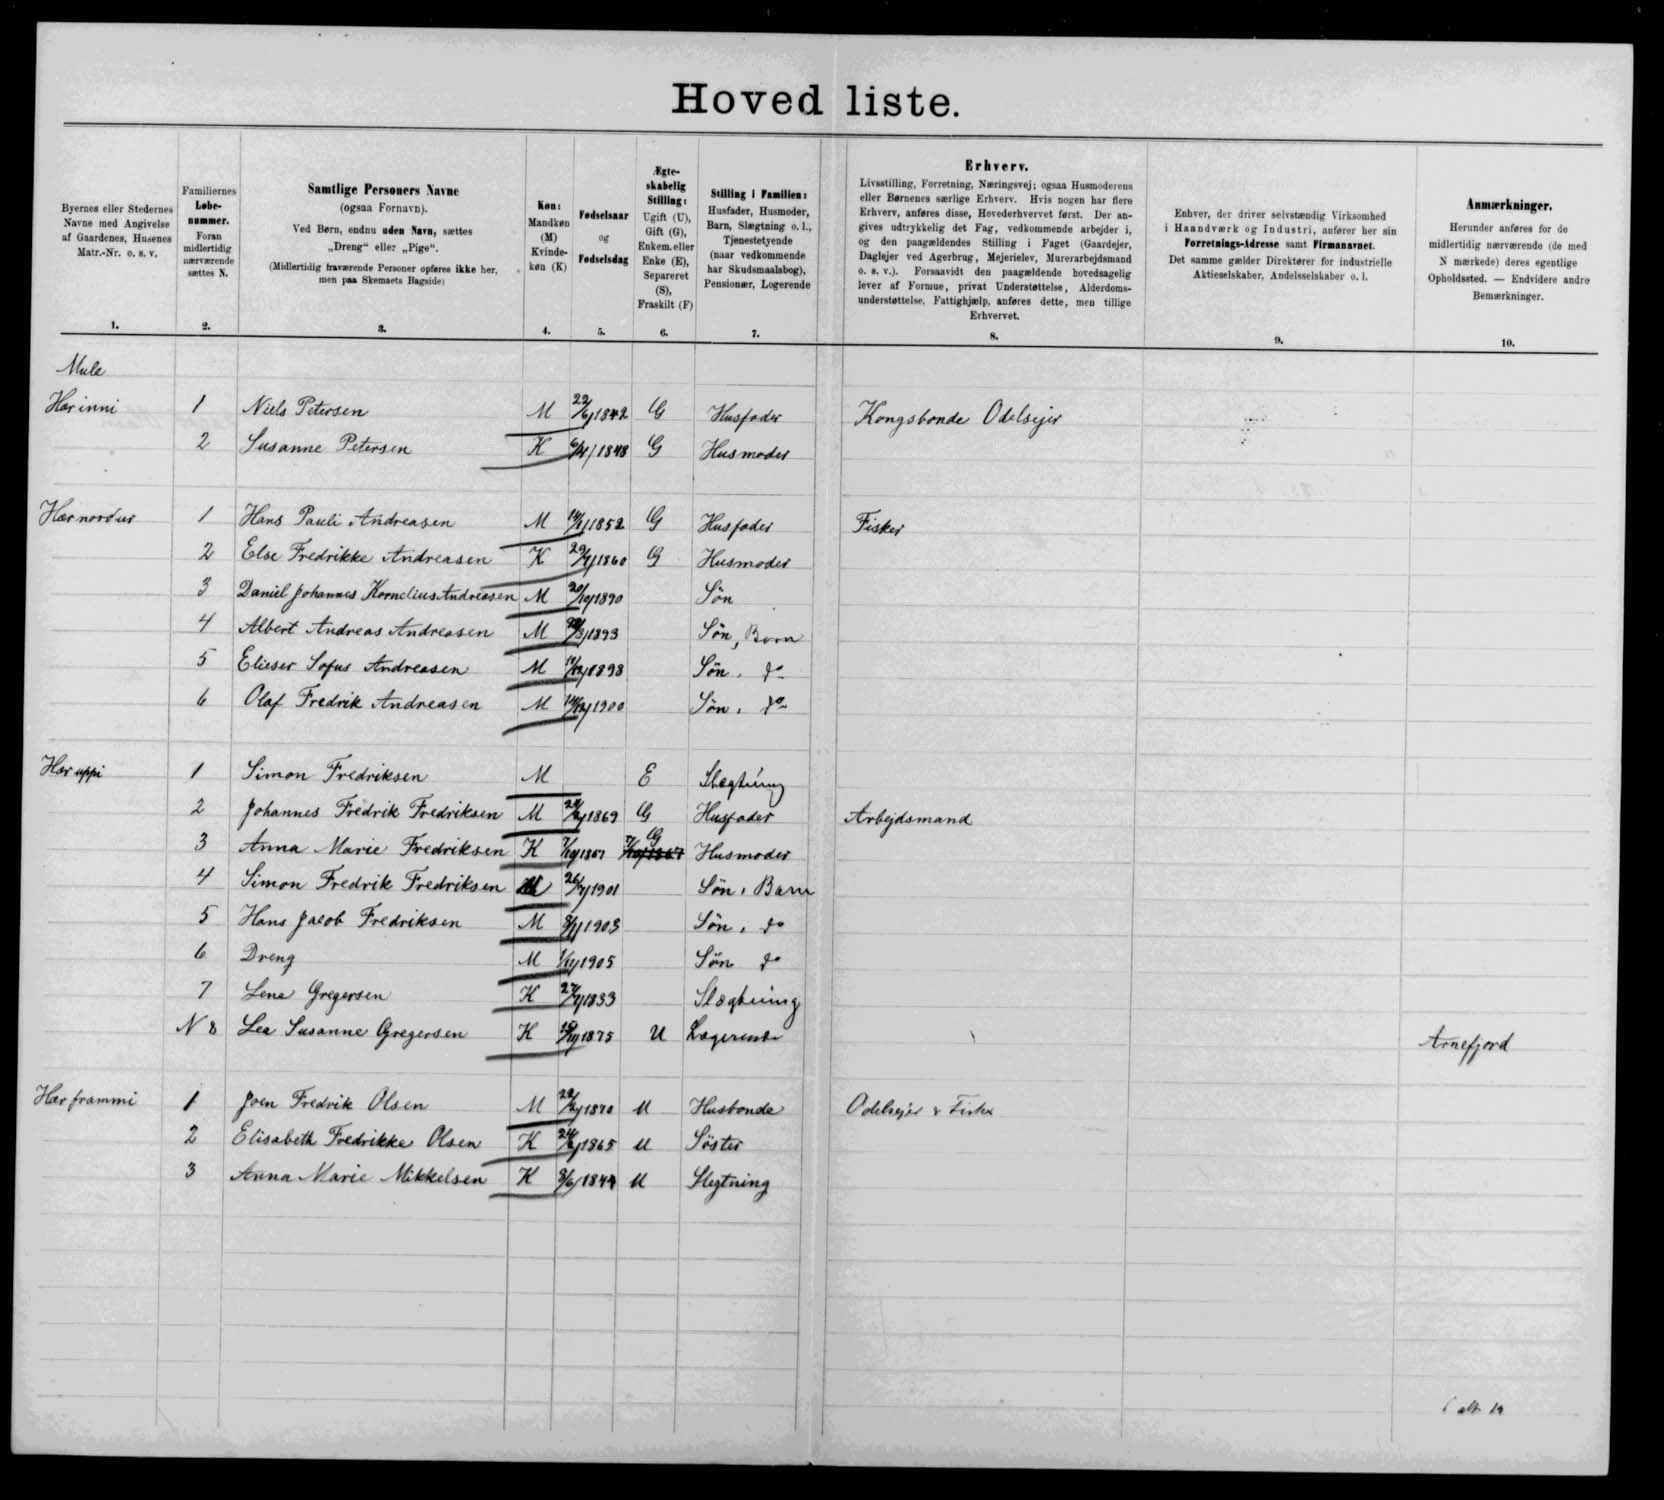 Hovedliste.
Byernes eller Stedernes
Navne med Angivelse
af Gaardenes, Husenes
Matr.-Nr. o. s. v.
1.
Familiernes
Løbe-
nummer.
Foran
midlertidig
nærværende
sættes N.
2.
Samtlige Personers Navne
(ogsaa Fornavn).
Ved Børn, endnu uden Navn, sættes
„Dreng" eller „Pige".
(Midlertidig fraværende Personer opføres ikke her,
men paa Skemaets Bagside)
3.
Køn:
Mandkøn
(M)
Kvinde-
køn (K)
4.
Fødselsaar
og
Fødselsdag
5.
Ægte-
skabelig
Stilling:
Ugift (U),
Gift (G),
Enkem. eller
Enke (E),
Separeret
(S),
Fraskilt (F)
6.
Stilling i Familien:
Husfader, Husmoder,
Barn, Slægtning o. l.,
Tjenestetyende
(naar vedkommende
har Skudsmaalsbog),
Pensionær, Logerende
7.
Erhverv.
Livsstilling, Forretning, Næringsvej; ogsaa Husmoderens
eller Børnenes særlige Erhverv. Hvis nogen har flere
Erhverv, anføres disse, Hovederhvervet først. Der an-
gives udtrykkelig det Fag, vedkommende arbejder i,
og den paagældendes Stilling i Faget (Gaardejer,
Daglejer ved Agerbrug, Mejerielev, Murerarbejdsmand
o. s. v.). Forsaavidt den paagældende hovedsagelig
lever af Formue, privat Understøttelse, Alderdoms-
understøttelse, Fattighjælp, anføres dette, men tillige
Erhvervet.
8.
Enhver, der driver selvstændig Virksomhed
i Haandværk og Industri, anfører her sin
Forretnings-Adresse samt Firmanavnet.
Det samme gælder Direktører for industrielle
Aktieselskaber, Andelsselskaber o. l.
9.
Anmærkninger.
Herunder anføres for de
midlertidig nærværende (de med
N mærkede) deres egentlige
Opholdssted. — Endvidere andre
Bemærkninger.
10.
Mule
Har inni 1 Niels Petersen M 22/6 1842 G Husfader Kongsbonde Odelsejer
2 Susanne Petersen K 1848 G Husmoder
Har nordur 1 Hans Pauli Andreasen M 1852 G Husfader Fisker
2 Else Fredrikke Andreasen K 1860 G Husmoder
3 Daniel Johannes Kornelius Andreasen M 20/10 1890 Søn
4 Albert Andreas Andreasen M 1893 Søn, Barn
5 Elieser Sofus Andreasen M 1898 Søn, do
6 Olaf Fredrik Andreasen M 1900 Søn, do
Har uppi 1 Simon Fredriksen M E Slægtning
2 Johannes Fredrik Fredriksen M 1869 G Husfader Arbejdsmand
3 Anna Marie Fredriksen K 1867 G Husmoder
4 Simon Fredrik Fredriksen M 1901 Søn, Barn
5 Hans Jacob Fredriksen M 1903 Søn, do
6 Dreng M 1905 Søn do
7 Lene Gregersen K 1833 Slægtning
N 8 Lea Susanne Gregersen K 1875 U Logerende Arnefjord
Har frammi 1 Joen Fredrik Olsen M 1870 U Husbonde Odelsejer & Fisker
2 Elisabeth Fredrikke Olsen K 1865 U Søster
3 Anna Marie Mikkelsen K 3/6 1844 U Slegtning
I alt 19